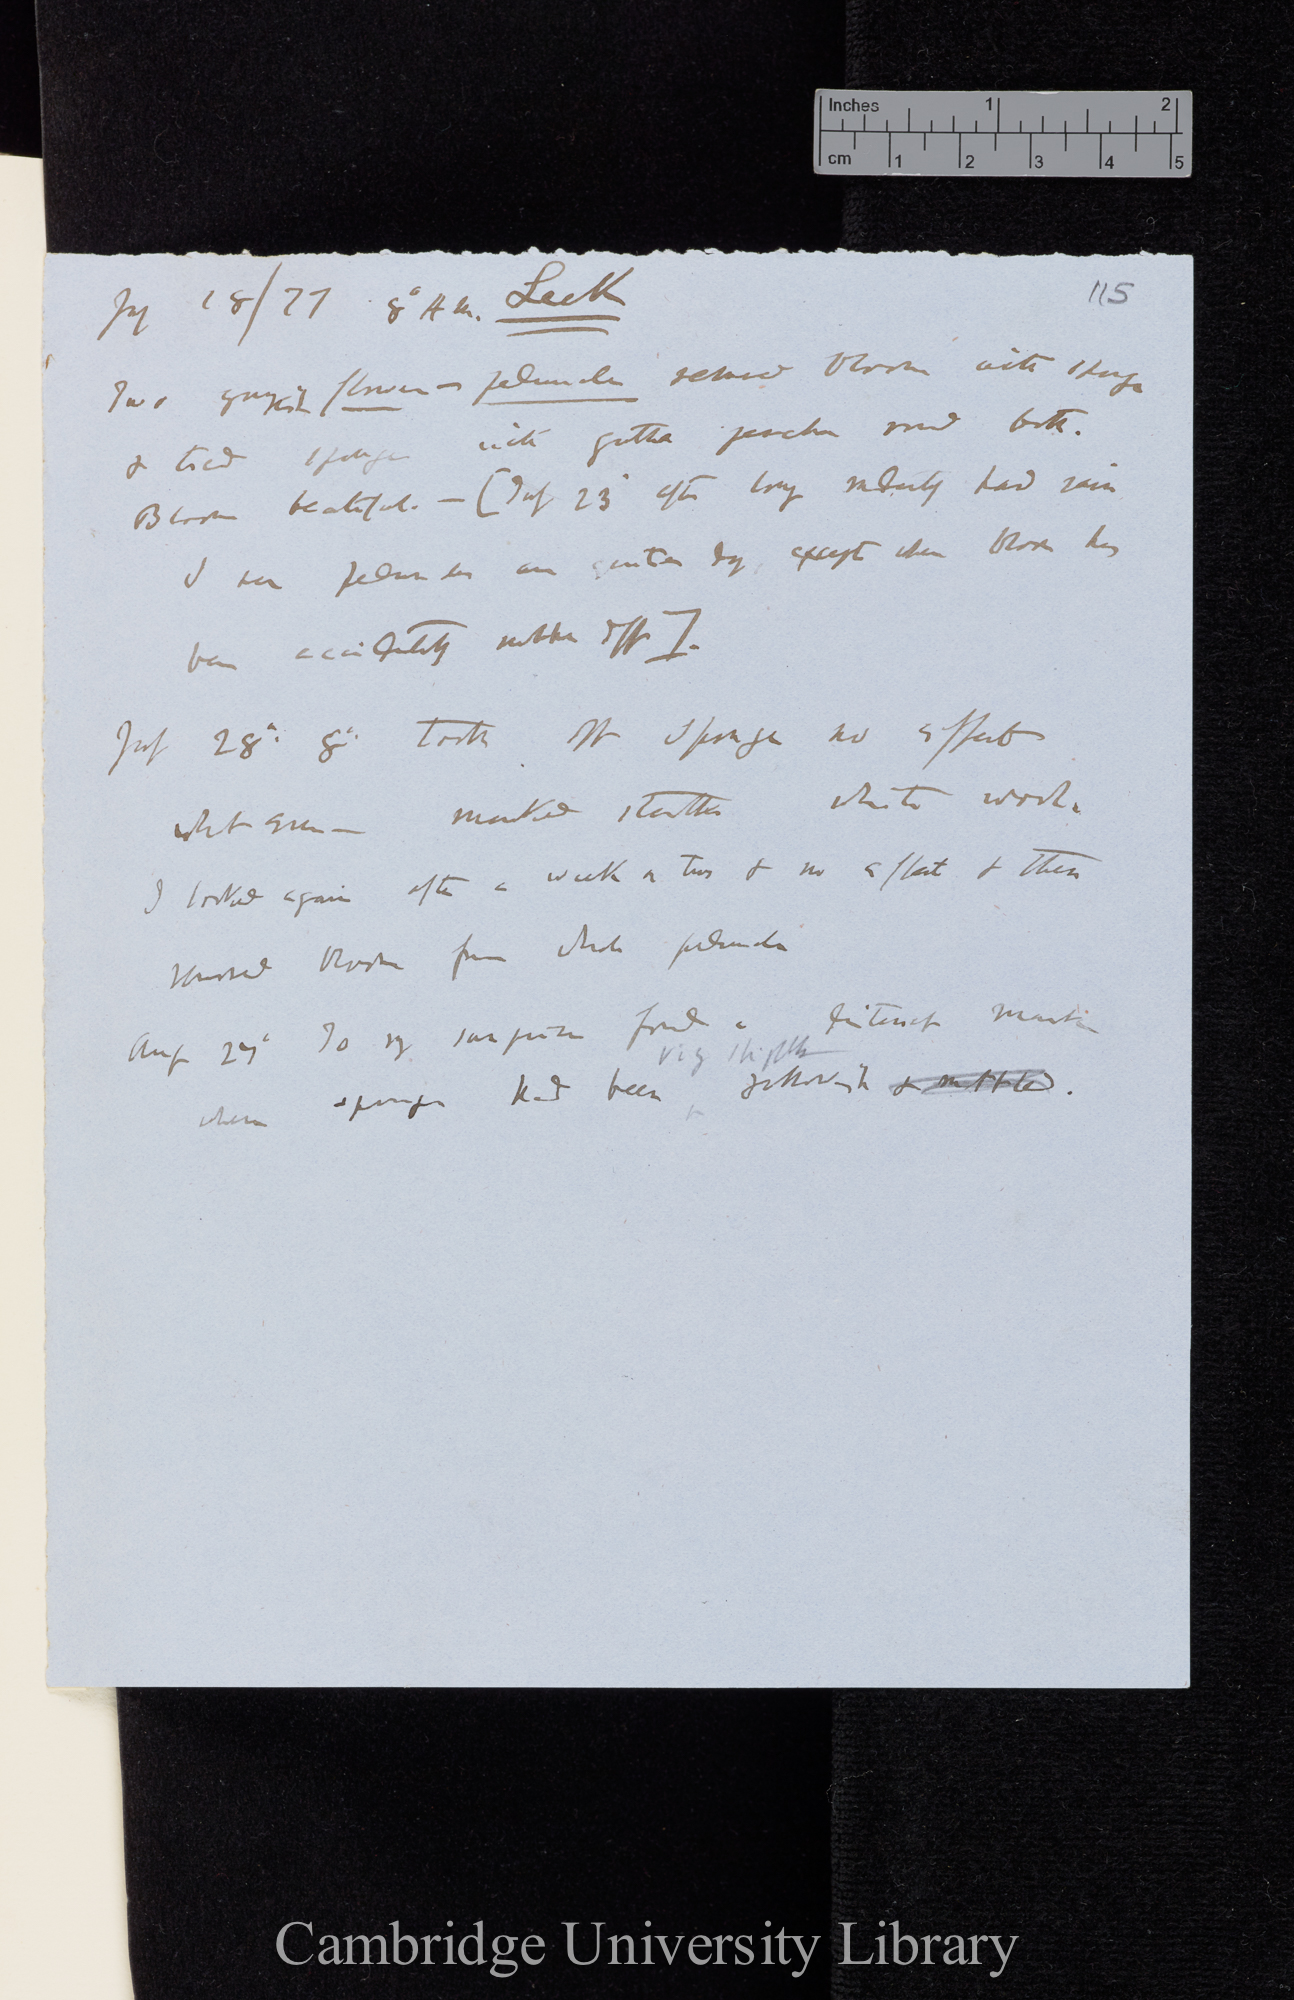 Inches 1 2
cm 1 2 3 4 5
115
Jy 18/77 8° A.m. Leek
Two youngish flower-peduncles removed bloom with sponge
& tied sponge with gutta percha round both.
Bloom beautiful. — [July 23 after long & hard rain
I see peduncles are quite dry, except when bloom has
been accidentally rubbed off].
July 28° 8° Took off sponge no effect
whatever — marked stouter white wool.
I looked again after a week or two & no effect & then
removed bloom from whole peduncle
Aug 29° To my surprise found a distinct mark
very slightly
where sponge had been yellowish & mottled.
Cambridge University Library